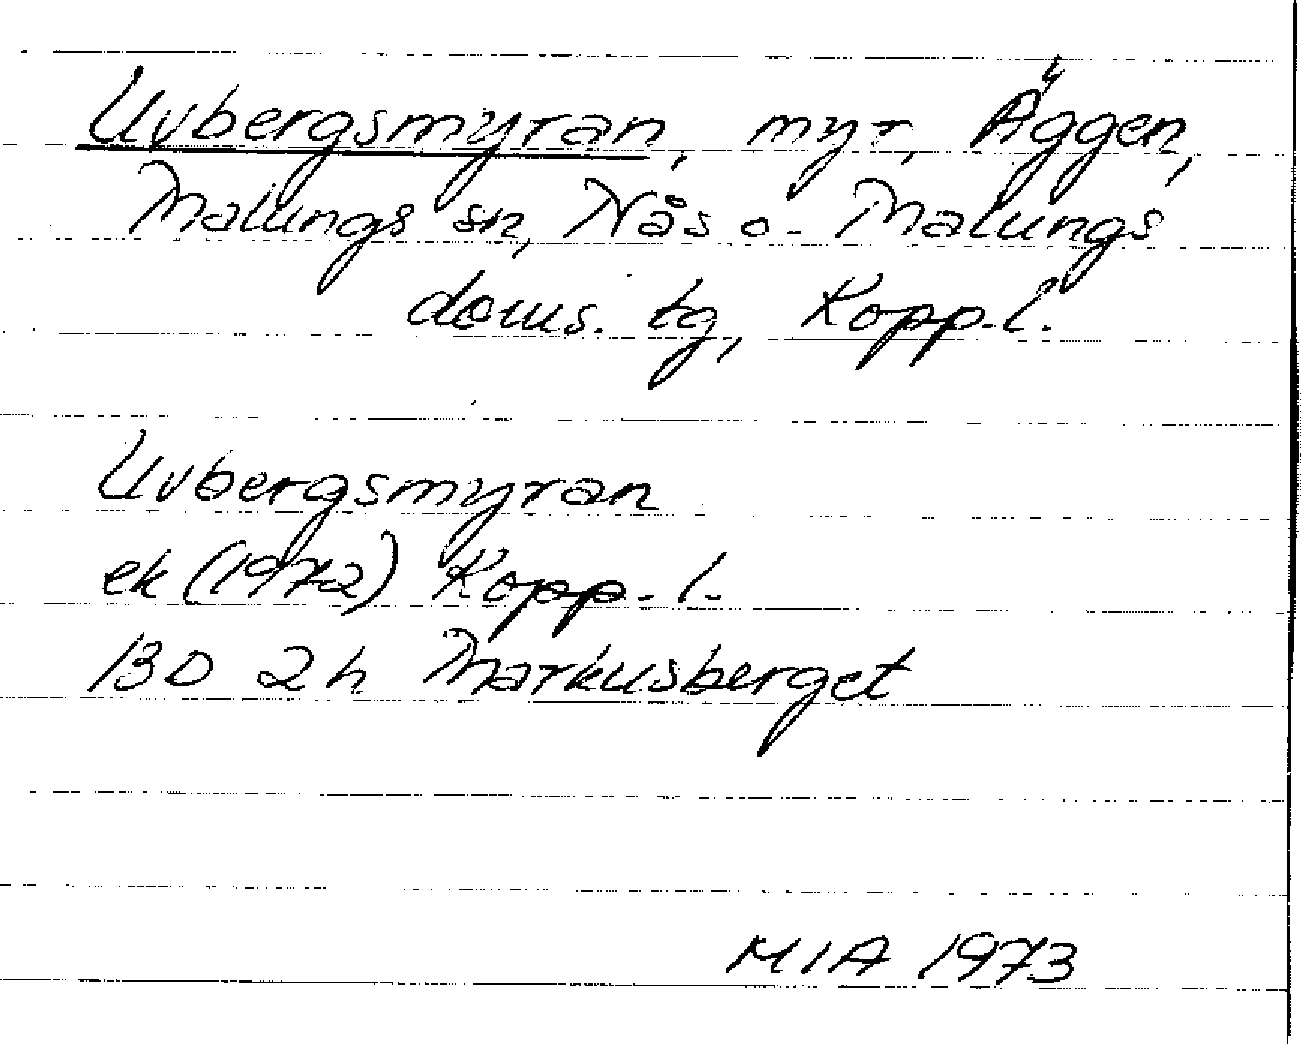 Uvbergsmyran, myr, Äggen,
Malungs sn, Nås o. Malungs
doms. tg, Kopp. l.
Uvbergsmyran
ek (1972) Kopp. l.
13D 2h Markusberget
MIA 1973